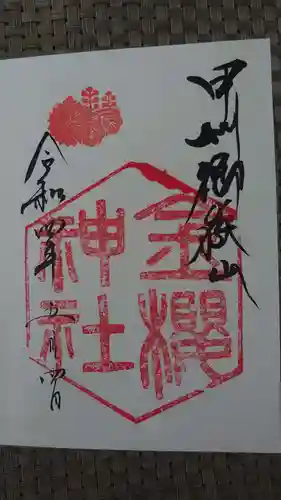 甲州御嶽山
金櫻
神社
令和四年五月四日